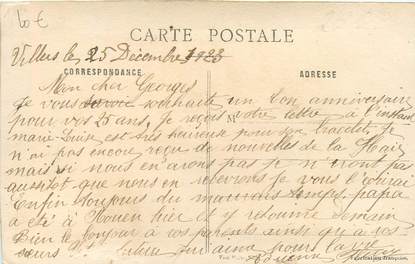 60 €
CARTE POSTALE
Villers le 25 Décembre 1923
CORRESPONDANCE
ADRESSE
Mon cher Georges
Je vous souhaite un bon anniversaire
pour vos 25 ans, Je reçois votre lettre à l'instant
marie-Luise est très heureuse pour son bracelet, Je
n'ai pas encore reçue de nouvelles de la
mais si nous en avons pas Je n'
aussitot que nous en recevrons je vous l'écrirai
Enfin toujours du mauvais temps. papa
a été à Rouen hier et y retourne demain
Bien le bonjour à vos parents ainsi qu'à vos
sœurs
qui aime pour la vie
Fabrication française